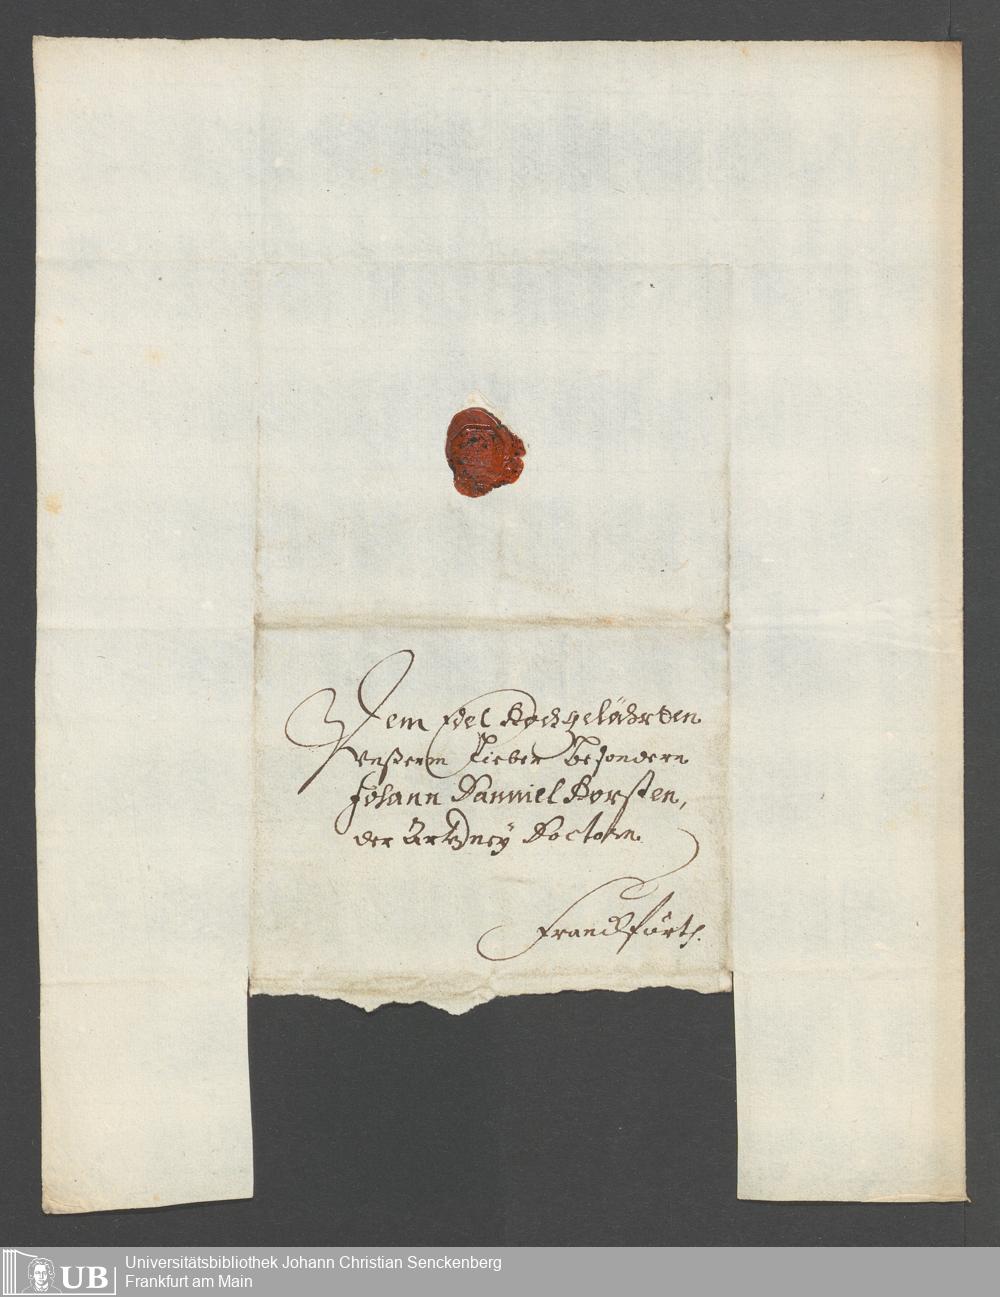 Dem Edel Hochgelährten
Unßerm Lieber Besondern
Johann Danniel Horsten,
der Artzney Doctorn
Franckfürth.
UB
Universitätsbibliothek Johann Christian Senckenberg
Frankfurt am Main